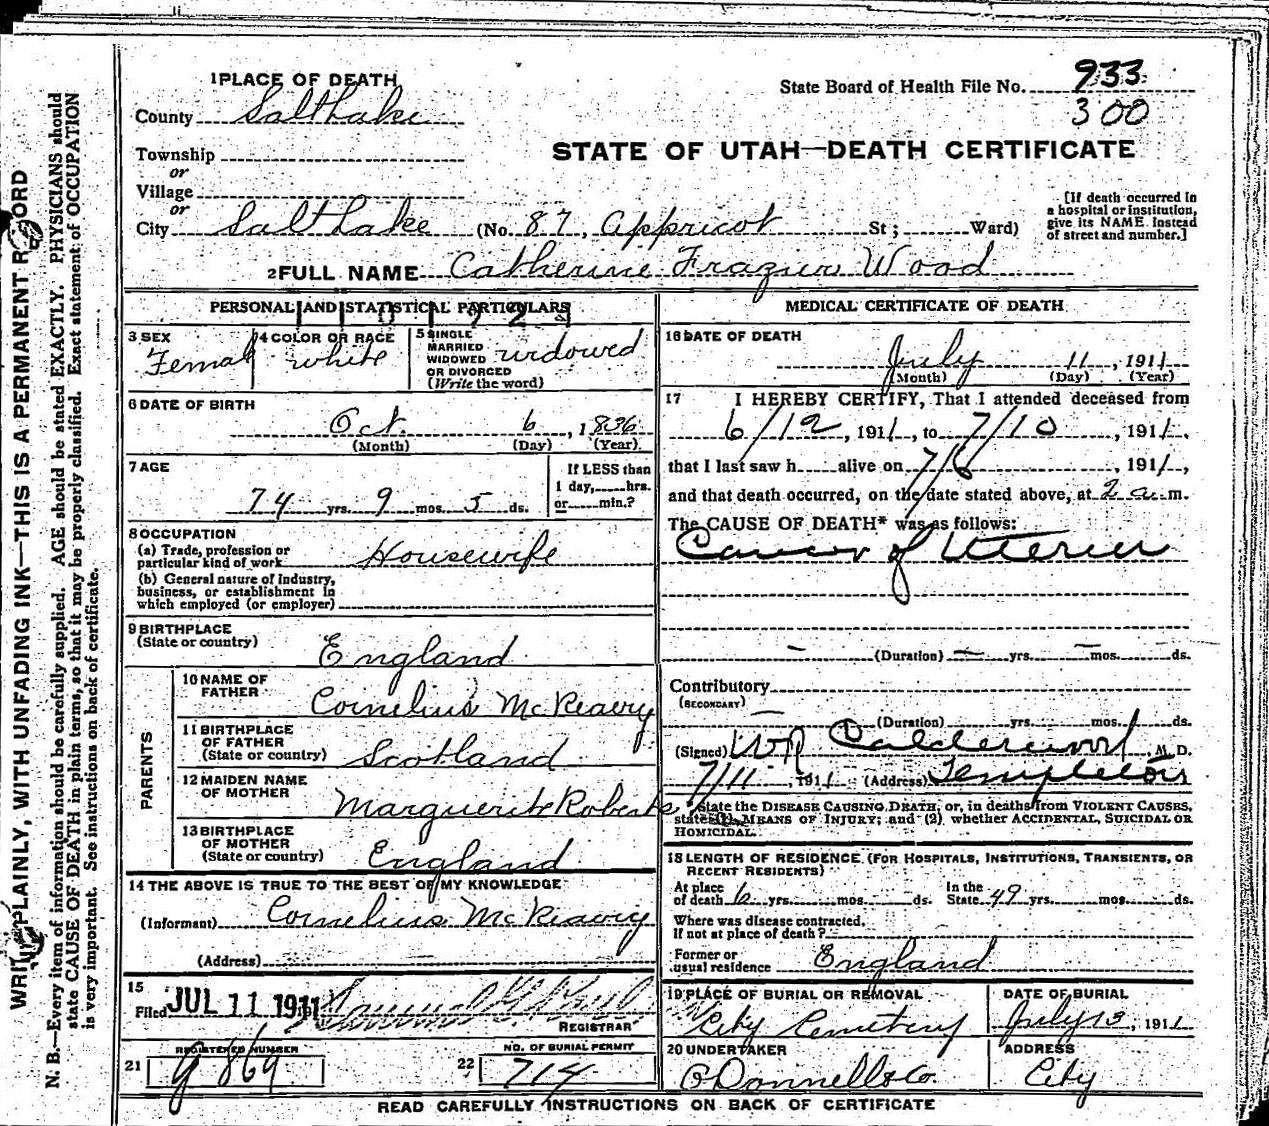 1 PLACE OF DEATH
State Board of Health File No. 933
300
County Salt Lake
STATE OF UTAH—DEATH CERTIFICATE
Township
or
Village
or
City Salt Lake (No. 87, Appricot St; Ward)
[If death occurred in
a hospital or institution,
give its NAME instead
of street and number.]
2 FULL NAME Catherine Frazier Wood
PERSONAL AND STATISTICAL PARTICULARS
3 SEX Femal
4 COLOR OR RACE white
5 SINGLE
MARRIED
WIDOWED
OR DIVORCED
(Write the word)
widowed
6 DATE OF BIRTH
Oct. 6, 1836
(Month) (Day) (Year)
7 AGE
74 yrs. 9 mos. 5 ds.
If LESS than
1 day, hrs.
or min.?
8 OCCUPATION
(a) Trade, profession or
particular kind of work Housewife
(b) General nature of industry,
business, or establishment in
which employed (or employer)
9 BIRTHPLACE
(State or country) England
PARENTS
10 NAME OF
FATHER Cornelius McReavy
11 BIRTHPLACE
OF FATHER
(State or country) Scotland
12 MAIDEN NAME
OF MOTHER Marguerite Roberts
13 BIRTHPLACE
OF MOTHER
(State or country) England
14 THE ABOVE IS TRUE TO THE BEST OF MY KNOWLEDGE
(Informant) Cornelius McReavy
(Address)
15
Filed JUL 11 1911
REGISTRAR
21 REGISTERED NUMBER
869
22 NO. OF BURIAL PERMIT
714
MEDICAL CERTIFICATE OF DEATH
16 DATE OF DEATH
July 11, 1911
(Month) (Day) (Year)
17 I HEREBY CERTIFY, That I attended deceased from
6/12, 1911, to 7/10, 1911,
that I last saw h alive on 7/6, 1911,
and that death occurred, on the date stated above, at 2 a.m.
The CAUSE OF DEATH* was as follows:
Cancer of Uterus
(Duration) — yrs. — mos. ds.
Contributory
(SECONDARY)
(Duration) yrs. mos. ds.
(Signed) WR Calderwood, M. D.
7/11, 1911 (Address) Templeton
*State the DISEASE CAUSING DEATH, or, in deaths from VIOLENT CAUSES,
state (1) MEANS OF INJURY; and (2) whether ACCIDENTAL, SUICIDAL OR
HOMICIDAL.
18 LENGTH OF RESIDENCE (FOR HOSPITALS, INSTITUTIONS, TRANSIENTS, OR
RECENT RESIDENTS)
At place
of death 6 yrs. mos. ds.
In the
State 49 yrs. mos. ds.
Where was disease contracted,
If not at place of death?
Former or
usual residence England
19 PLACE OF BURIAL OR REMOVAL
City Cemetery
DATE OF BURIAL
July 13, 1911
20 UNDERTAKER
O'Donnell & Co.
ADDRESS
City
READ CAREFULLY INSTRUCTIONS ON BACK OF CERTIFICATE
WRITE PLAINLY, WITH UNFADING INK—THIS IS A PERMANENT RECORD
N. B.—Every item of information should be carefully supplied. AGE should be stated EXACTLY. PHYSICIANS should
state CAUSE OF DEATH in plain terms, so that it may be properly classified. Exact statement of OCCUPATION
is very important. See instructions on back of certificate.